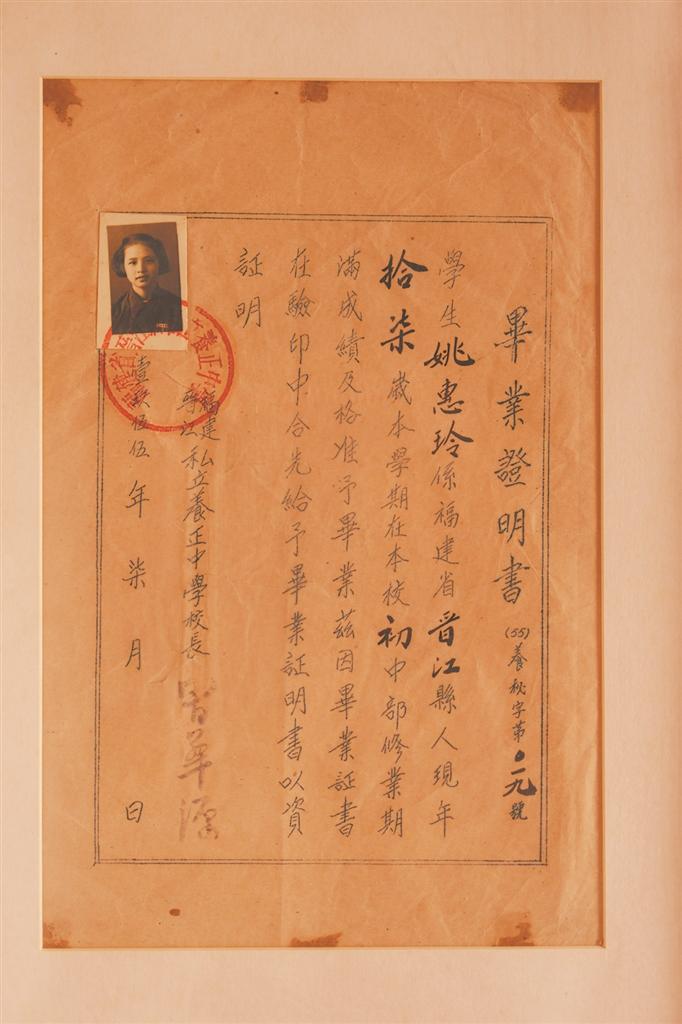 畢業證明書
(55)養秋字第〇一九號
學生姚惠玲係福建省晋江縣人現年
拾柒歲本學期在本校初中部修業期
滿成績及格准予畢業茲因畢業証書
在驗印中合先給予畢業証明書以資
証明
福建
晋江
私立養正中學校長
壹玖伍伍年柒月 日